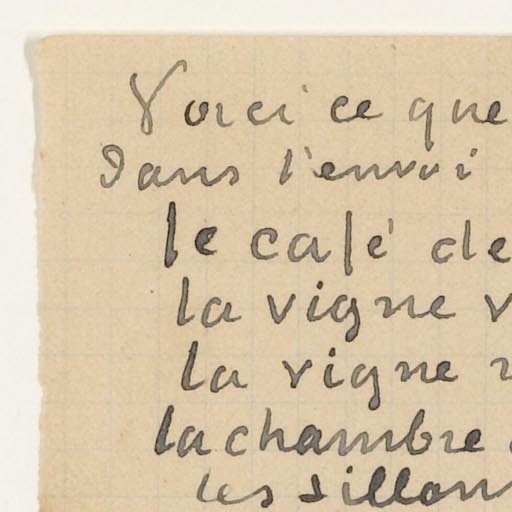 Voici ce que
Dans l'envoi
le café de
la vigne v
la vigne
la chambre
les sillon